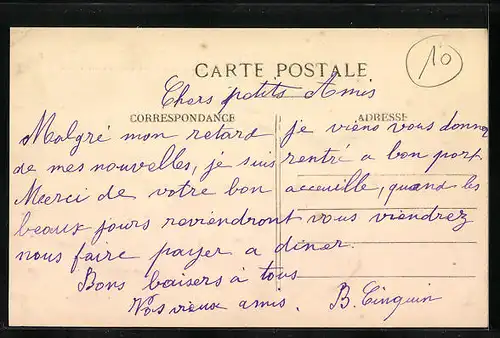 10
CARTE POSTALE
Chers petits Amis
CORRESPONDANCE ADRESSE
Malgré mon retard je viens vous donner
de mes nouvelles, je suis rentré a bon port
Merci de votre bon acceuille, quand les
beaux jours reviendront vous viendrez
nous faire payer a diner.
Bons baisers à tous
Vos vieux amis. B. Cinquin